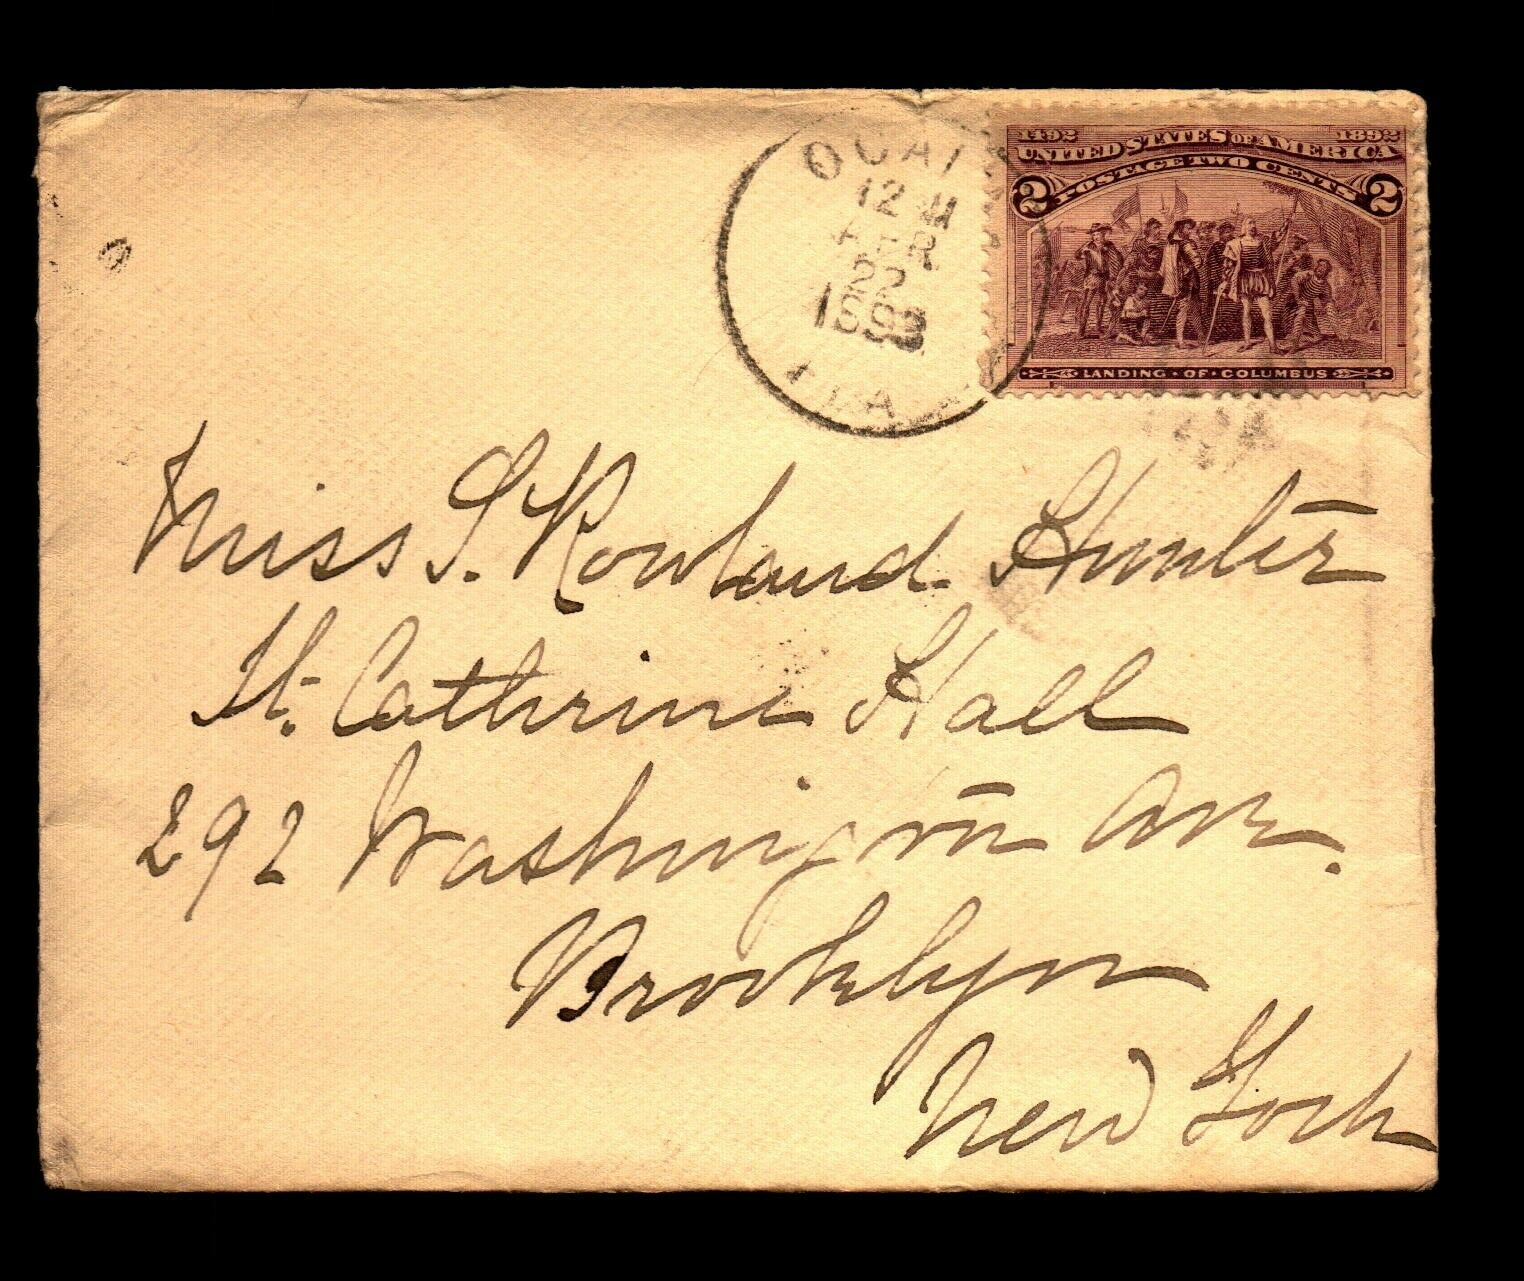 1492 1892
UNITED STATES OF AMERICA
POSTAGE TWO CENTS
2 2
LANDING · OF · COLUMBUS
OCALA
12 M
APR
22
1893
FLA
Miss S. Rowland Hunter
St. Cathrine Hall
292 Washington Ave.
Brooklyn
New York